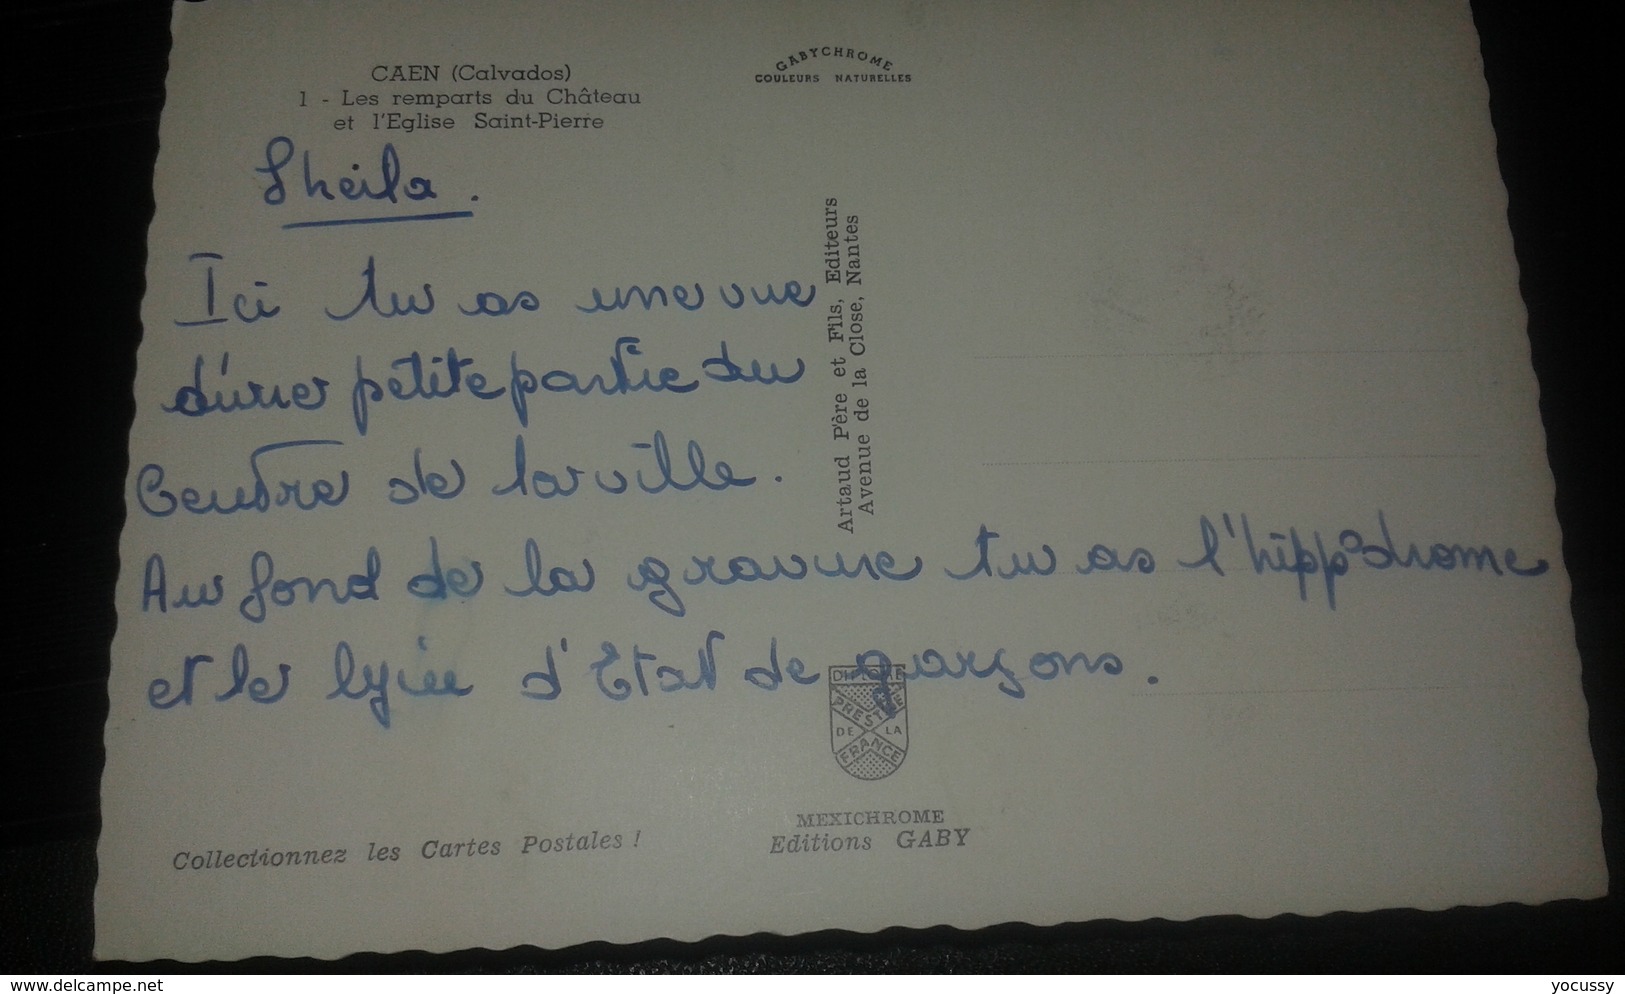 CAEN (Calvados)
1 - Les remparts du Château
et l'Eglise Saint-Pierre
GABYCHROME
COULEURS NATURELLES
Sheila.
Ici tu as une vue
d'une petite partie du
Centre de la ville.
Au fond de la gravure tu as l'hippodrome
et le lycée d'Etat de garçons.
Artaud Père et Fils, Editeurs
Avenue de la Close, Nantes
PRESTIGE
DE LA
FRANCE
MEXICHROME
Editions GABY
Collectionnez les Cartes Postales !
www.delcampe.net
yocussy